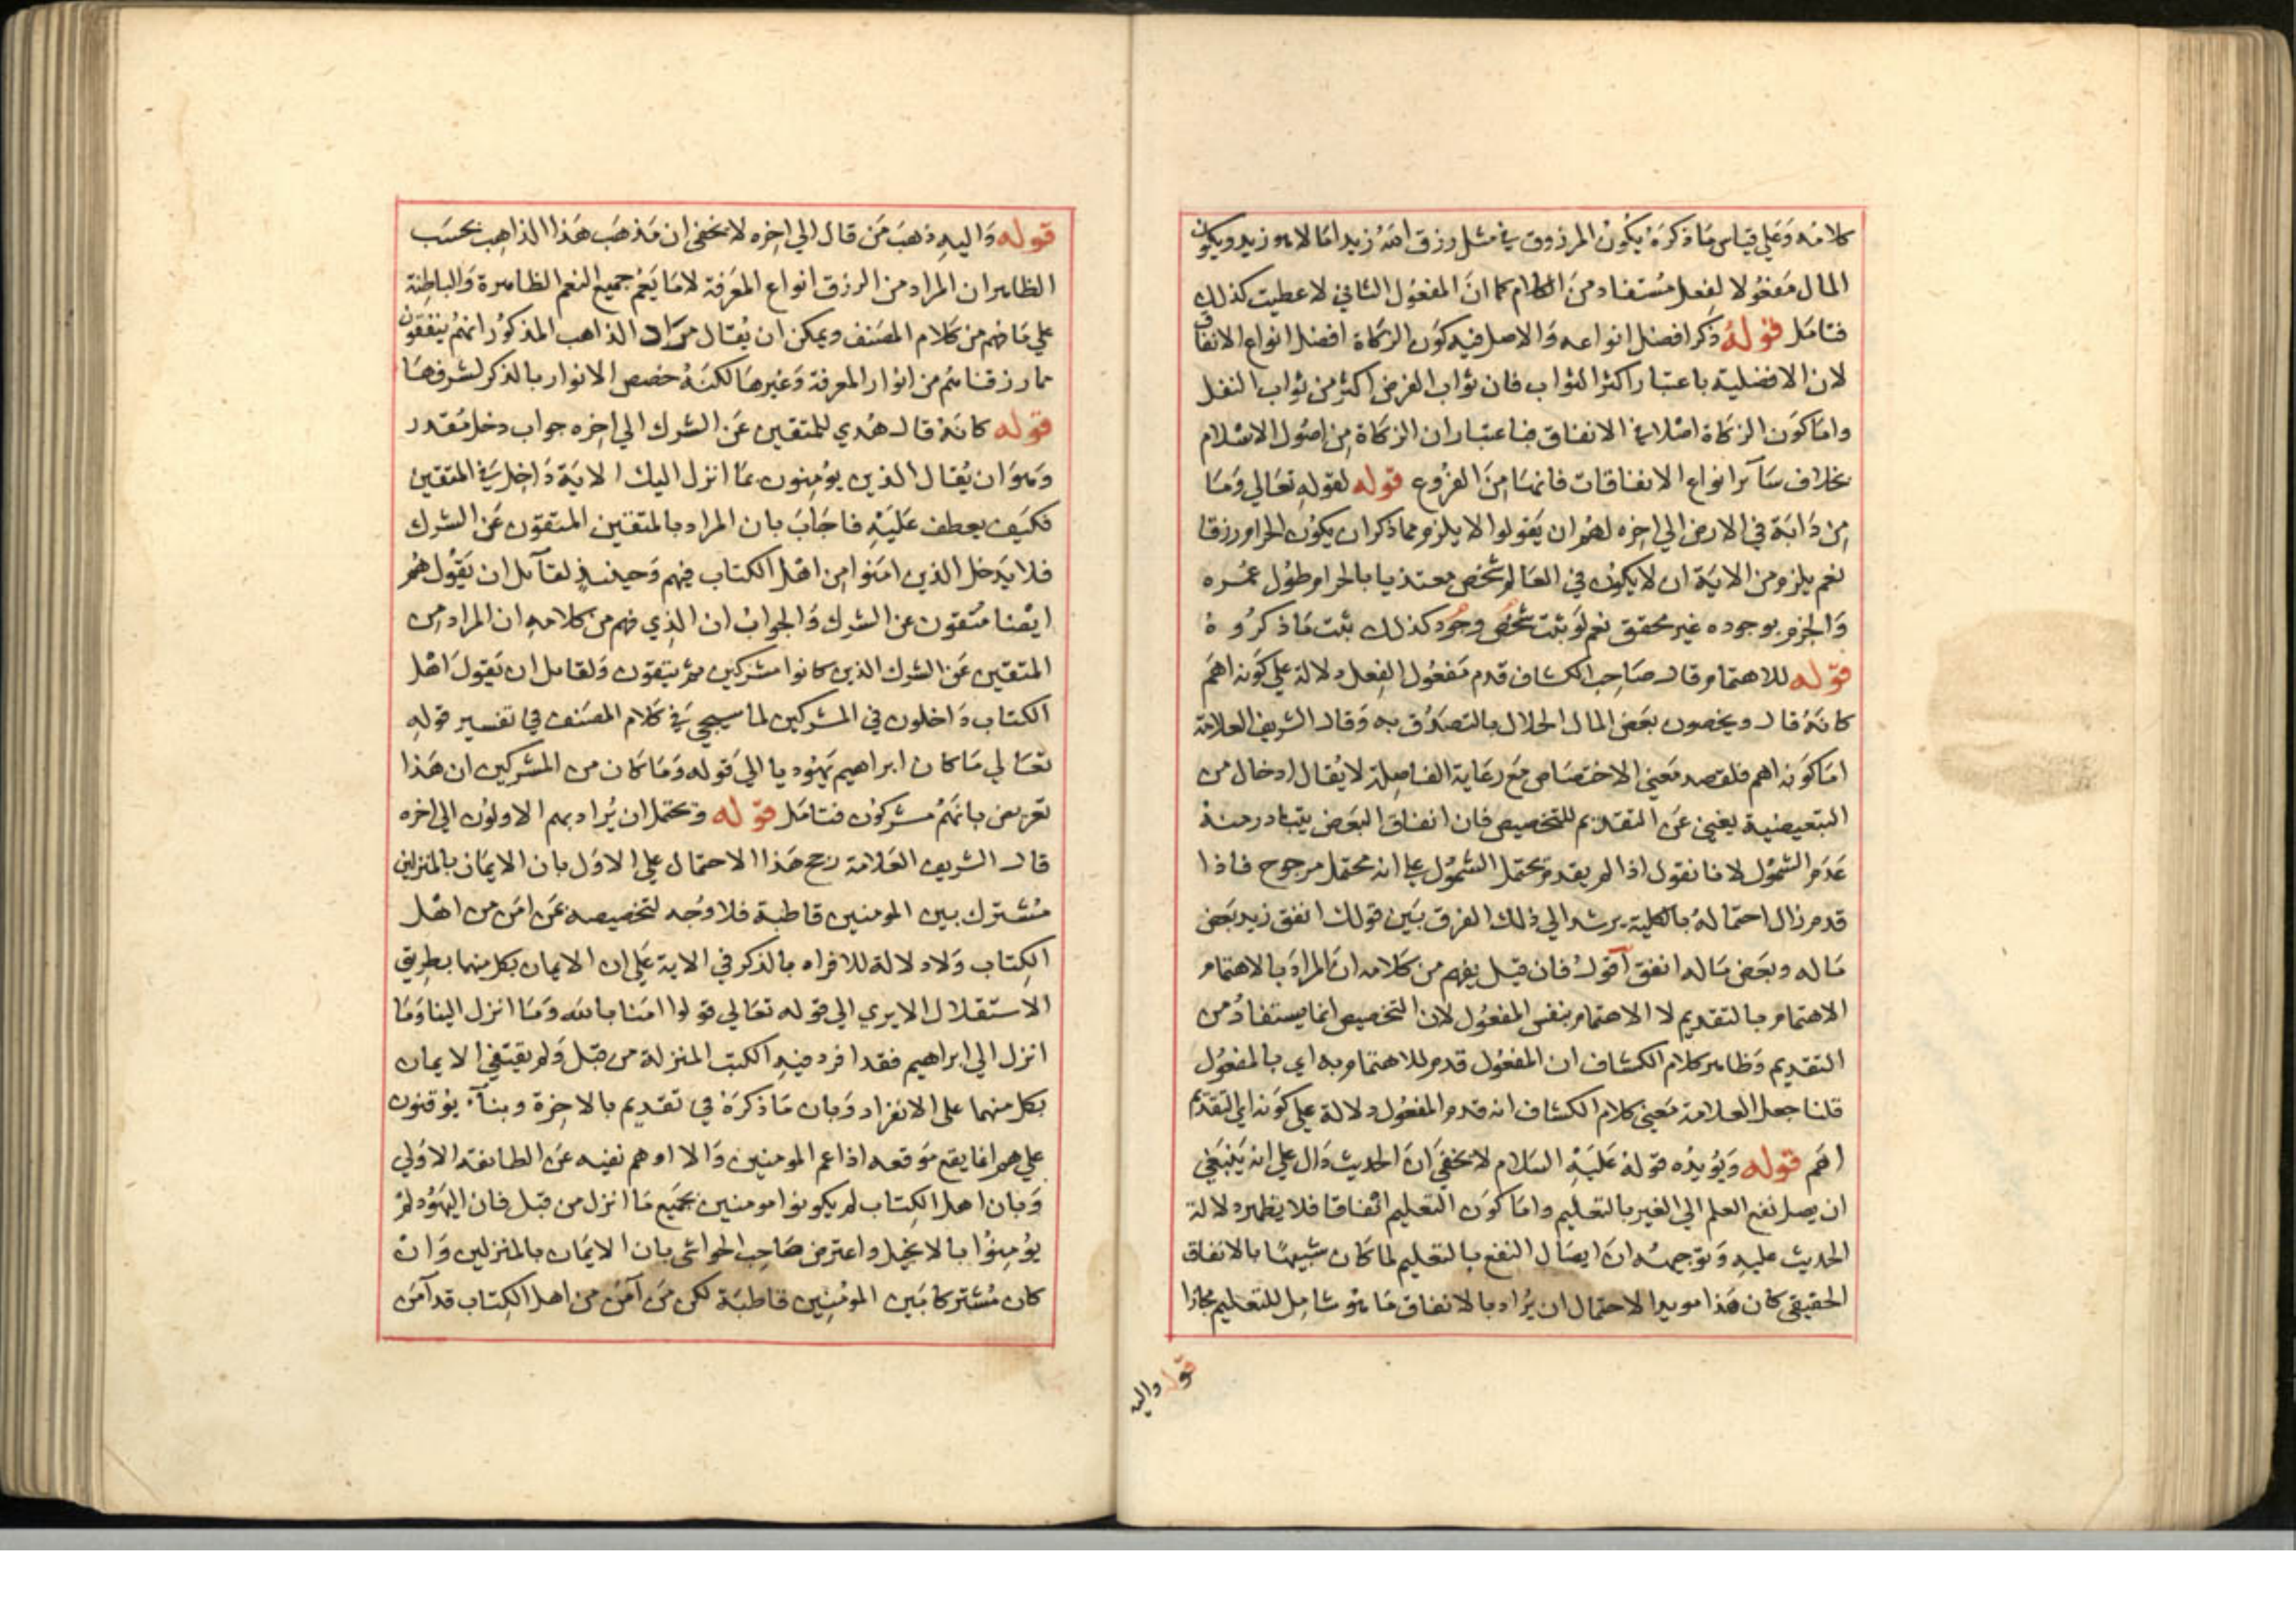 كلامه وَعَلي قياس مَا ذكرَهُ يكُونُ المرزوق في مثل رزق اللهُ زيدا مَالا هو زيد ويكون
المال مَفعُولا لفعل مُسْتفاد منَ الكلام كما انَ المفعُول الثاني لاعطيت كذلك
فتامَل قولهُ ذكر افضل انواعه وَالاصل فيه كوَن الزكاة افضل انواع الانفاق
لان الافضلية باعتبار اكثر الثواب فان ثواب الفرض اكثر من ثواب النفل
وامَا كوَن الزكاة اصْلا في الانفاق فباعتبار ان الزكاة مِن اصُول الاسْلام
بخلاف سَائر انواع الانفاقات فانهَا مِنَ الفرُوع قوله لقولهِ تعَالي وَمَا
مِن دَابَة في الارض الي اخره لهُم ان يَقولوا لا يلزم مما ذكر ان يكون الحرام رزقا
نعم يلزم من الاية ان لا يكون في العَالم شخص معتذيا بالحرام طوُل عمُره
وَالجزم بوجوده غير محقق نعم لوَ ثبت شخص وجُود كذلك ثبت مَا ذكرُوهُ
قوله للاهتمام قال صَاحِب الكشاف قدم مَفعُول الفِعل دلالة علي كوَنه اهَم
كانهُ قال ويخصون بعَض المال الحلال بالتصدُق به وَقال الشريف العلامة
امَا كوَنه اهم فلقصد مَعنى الاختصَاص مَع رعَاية الفاصِلة لا يُقال ادخال من
التبعيضية يغني عَن التقديم للتخصيص فان انفاق البعَض يتبادر منهُ
عَدَم الشمُول لانا نقول اذا لم يقدم يحتمل الشمُول علي انه محتمل مرجوح فاذا
قدم زال احتمالهُ بالكلية يرشد الي ذلك الفرق بَين قولك انفق زيد بَعض
مَاله وبعَض مَاله انفق اقولُ فان قيل يفهم من كلامه انَ المرادَ بالاهتمام
الاهتمام بالتقديم لا الاهتمام بنفس المفعُول لان التخصيص انما يستفادُ من
التقديم وَظاهر كلام الكشاف ان المفعُول قدم للاهتمام به اي بالمفعُول
قلنا جعل العلامة مَعنى كلام الكشاف انه قدم المفعُول دلالة علي كوَنه اي التقديم
اهَم قوله وَيُؤيدُه قولهُ عَليَهِ السَلام لا يخفيَ انَ الحديث دَال علي انه يَنبَغي
ان يصل نفع العلم الي الغير بالتعليم وامَا كوَن التعليم انفاقا فلا يظهر دلالة
الحديث عليه وَتوَجيههُ انَ ايصَال النفع بالتعليم لما كان شبيهًا بالانفاق
الحقيقي كان هَذا مويدا لاحتمال ان يُراد بالانفاق مَا هوَ شامِل للتعليم مجازا
قوله واليه
قوله وَاليهِ ذهبَ مَن قال الي اخِره لا يخفي ان مَذهَب هَذا الذاهِب بحسَب
الظاهر ان المراد من الرزق انواع المعَرفة لا مَا يَعُم جميع النعم الظاهرة وَالباطِنة
علي مَا فهم من كلام المصَنف ويمكن ان يُقال مرَاد الذاهب المذكوُر انهمُ ينفقون
مما رزقناهُم من انوار المعرفة وَغيرهَا لكنهُ خصص الانوار بالذكر لشرفهَا
قوله كانهُ قال هُدي للمتقين عَن الشرك الي اخِره جواب دخل مُقدر
وَهوَ ان يُقال الذين يوُمِنون بمَا انزل اليك الايَة دَاخِل في المتقين
فكيَف يعطف عَليَهِ فاجَابَ بان المراد بالمتقين المتقون عَن الشرك
فلا يَدخل الذين امَنوا مِن اهْل الكتاب فيهم وَحينئذٍ لقائل ان يَقُول هُم
ايضا مُتقون عن الشرك وَالجوابُ ان الذِي فهم من كلامهِ ان المراد مِن
المتقين عَن الشرك الذين كانوا مشركين ثم يتقون وَلقائل ان يَقولَ اهْل
الكتاب دَاخلون في المشركين لما سيجي في كلام المصَنف في تفسير قولهِ
تعَالي مَا كان ابراهيم يَهُوديا الي قوله وَمَا كان من المشركين ان هَذا
تعريض بانهمُ مشركوُن فتامَل قوله وَيحتمل ان يُراد بهم الاولوُن الي اخره
قال الشريف العَلامة رجح هَذا الاحتمال علي الاوَل بان الايمَان بالمنزلين
مُشترك بين المومنين قاطبة فلا وَجُه لتخصيصه عَن امَن من اهْل
الكِتاب وَلا دلالة للافراد بالذكر في الاية عَلي ان الايمان بكل منهما بطِريق
الاستقلال الا يري الي قوله تعَالي قولوا امَنا بالله وَمَا انزل الينا وَمَا
انزل الي ابراهيم فقد افرد فيهِ الكتب المنزلة من قبل وَلم يقتضِ الايمان
بكل منهما علي الانفراد وَبان مَا ذكرَهُ في تقديم بالاخِرة وبناء يوُقنون
علي هم انما يقع موَقعه اذا عم المومنين وَالا اوهم نفيه عَن الطائفة الاوَلي
وَبان اهل الكِتاب لم يكونوا مومنين بجميَع مَا انزل من قبل فان اليهُود لمْ
يؤمِنوُا بالانجيل واعترض صَاحِب الحواشي بان الايمَان بالمنزلين وَانْ
كان مُشتركا بَين المومِنين قاطبَة لكن مَن آمَن من اهل الكِتاب قد آمَن